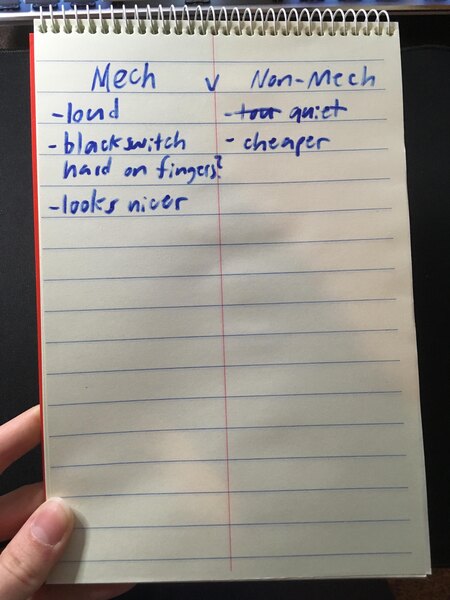 Mech v Non-Mech
-loud
-black switch
hard on fingers?
-looks nicer
- quiet
- cheaper